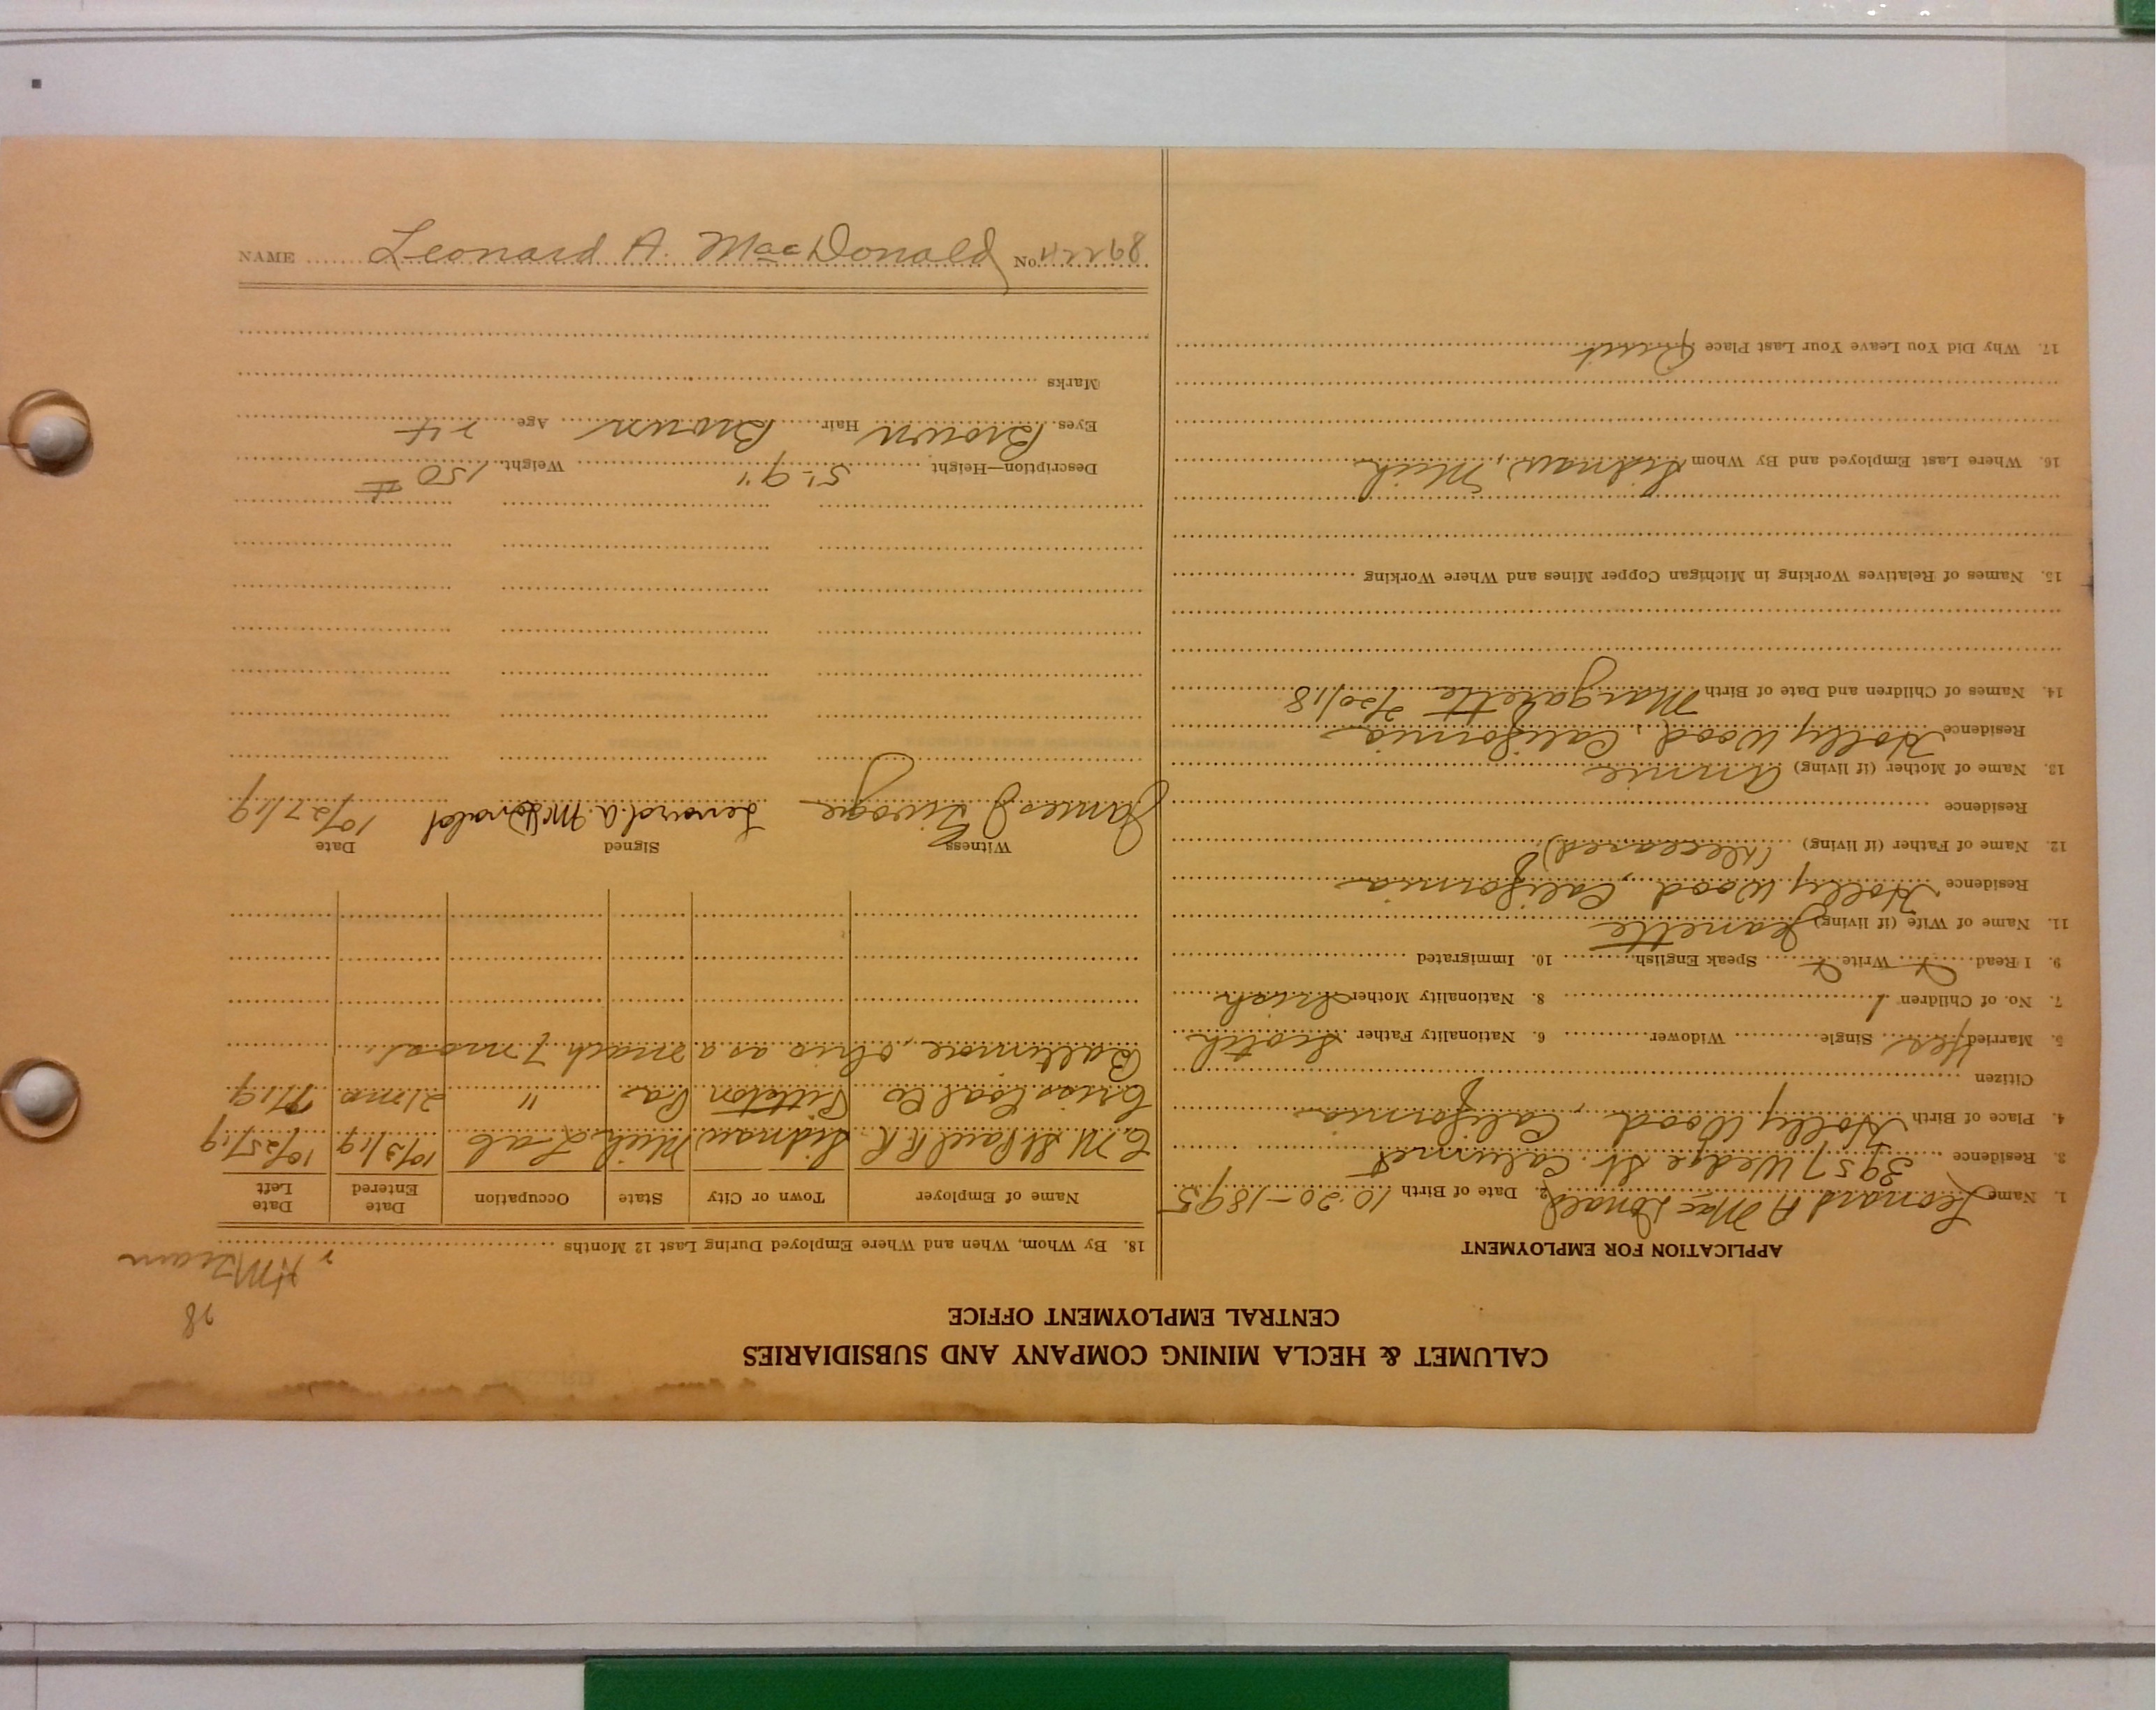 CALUMET & HECLA MINING COMPANY AND SUBSIDIARIES
CENTRAL EMPLOYMENT OFFICE
APPLICATION FOR EMPLOYMENT
1. Name Leonard A MacDonald 2. Date of Birth 10-20-1895
3. Residence 3957 Wedge St. Calumet
4. Place of Birth Holly Wood, California
Citizen
5. Married Yes Single Widower 6. Nationality Father Scotch
7. No. of Children 1 8. Nationality Mother Irish
9. I Read Write Speak English 10. Immigrated
11. Name of Wife (if living) Jeanette
Residence Holly Wood, California
12. Name of Father (if living) (deceased)
Residence
13. Name of Mother (if living) Annie
Residence Holly Wood, California
14. Names of Children and Date of Birth Margarette 2/20/18
15. Names of Relatives Working in Michigan Copper Mines and Where Working
16. Where Last Employed and By Whom Sidnaw, Mich
17. Why Did You Leave Your Last Place Quit
78
18. By Whom, When and Where Employed During Last 12 Months
Name of Employer Town or City State Occupation Date Entered Date Left
C. M St Paul R.R. Sidnaw Mich Lab 10/3/19 10/25/19
Erias Coal Co Pittston Pa " 21 mo 7/19
Baltimore, Ohio as a mach 7 mos
Witness Signed Date
James J Lenard. A. McDonald 10/27/19
Description—Height 5'-9" Weight 150 #
Eyes Brown Hair Brown Age 24
Marks
NAME Leonard A. MacDonald No. 42298